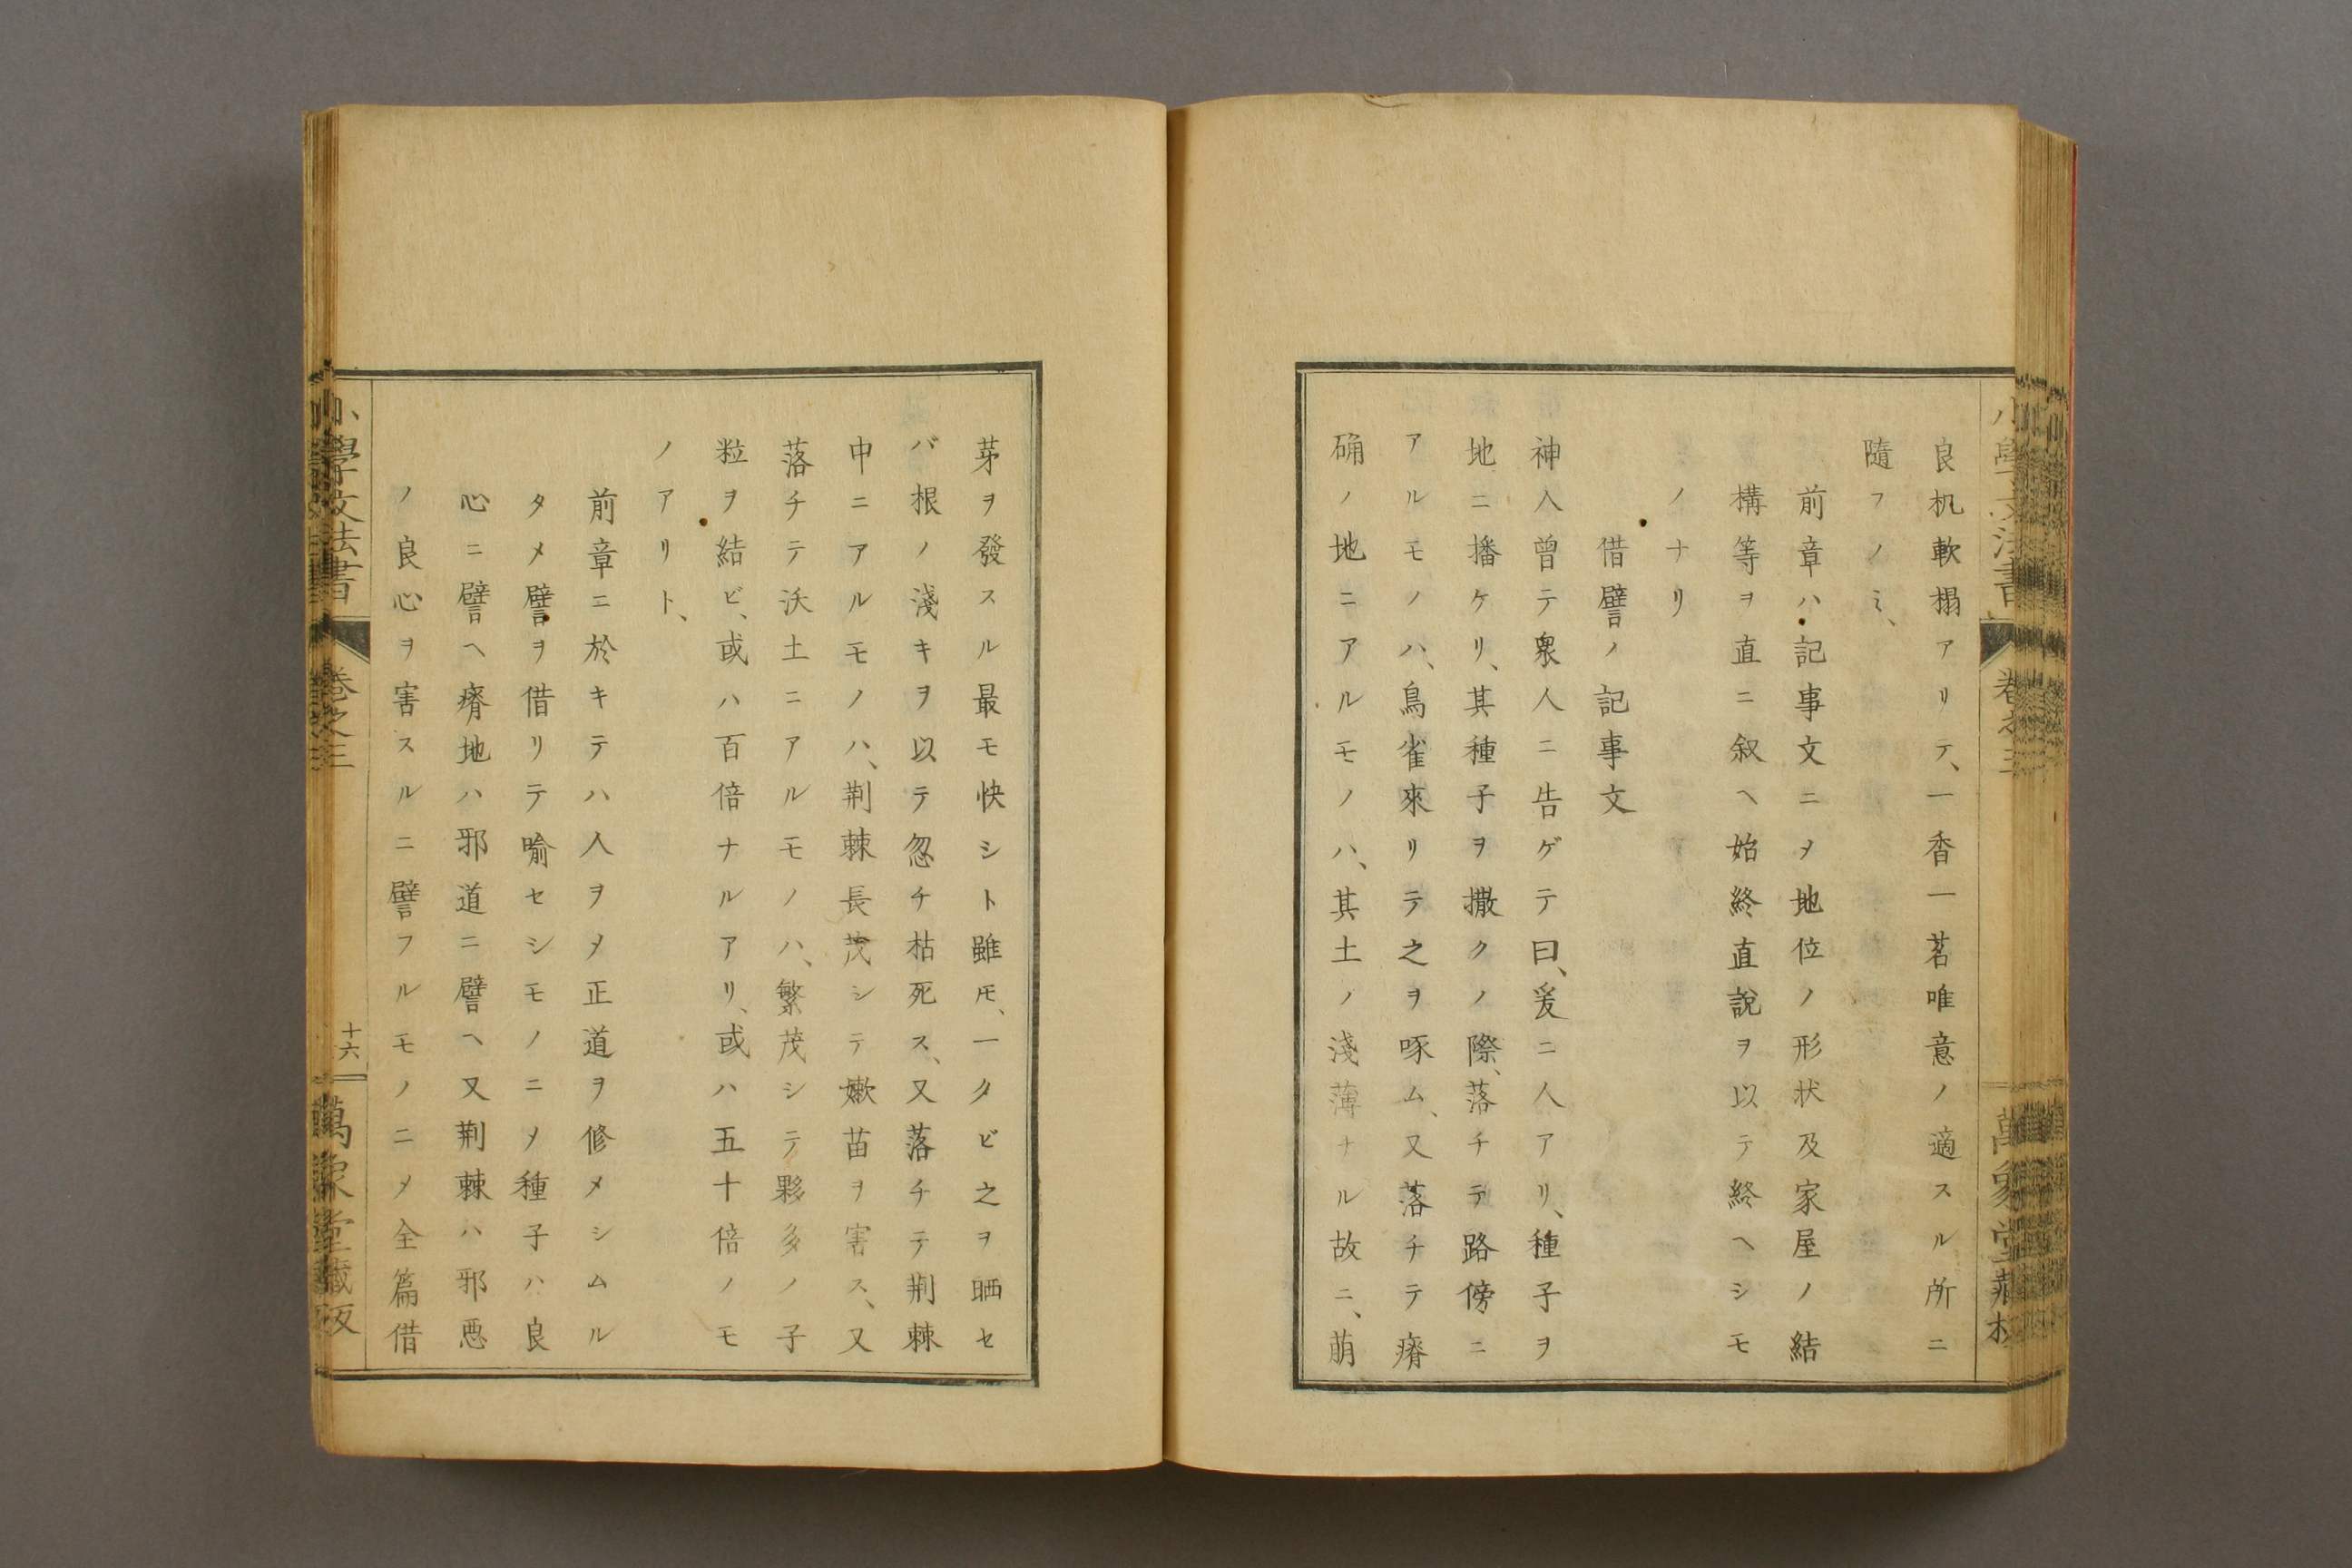 良机軟榻アリテ、一香一茗唯意ノ適スル所ニ
隨フノミ、
前章ハ記事文ニ〆地位ノ形状及家屋ノ結
構等ヲ直ニ叙ヘ始終直說ヲ以テ終ヘシモ
ノナリ
借譬ノ記事文
神人曾テ衆人ニ告ゲテ曰、爰ニ人アリ、種子ヲ
地ニ播ケリ、其種子ヲ撒クノ際、落チテ路傍ニ
アルモノハ、鳥雀來リテ之ヲ啄ム、又落チテ瘠
确ノ地ニアルモノハ、其土ノ淺薄ナル故ニ、萠
芽ヲ發スル最モ快シト雖𪜈、一タビ之ヲ晒セ
バ根ノ淺キヲ以テ忽チ枯死ス、又落チテ荆棘
中ニアルモノハ、荆棘長茂シテ嫩苗ヲ害ス、又
落チテ沃土ニアルモノハ、繁茂シテ夥多ノ子
粒ヲ結ビ、或ハ百倍ナルアリ、或ハ五十倍ノモ
ノアリト、
前章ニ於キテハ人ヲ〆正道ヲ修メシムル
タメ譬ヲ借リテ喩セシモノニ〆種子ハ良
心ニ譬ヘ瘠地ハ邪道ニ譬ヘ又荆棘ハ邪悪
ノ良心ヲ害スルニ譬フルモノニ〆全篇借
小學文法書
卷之三
十六
萬象堂藏版